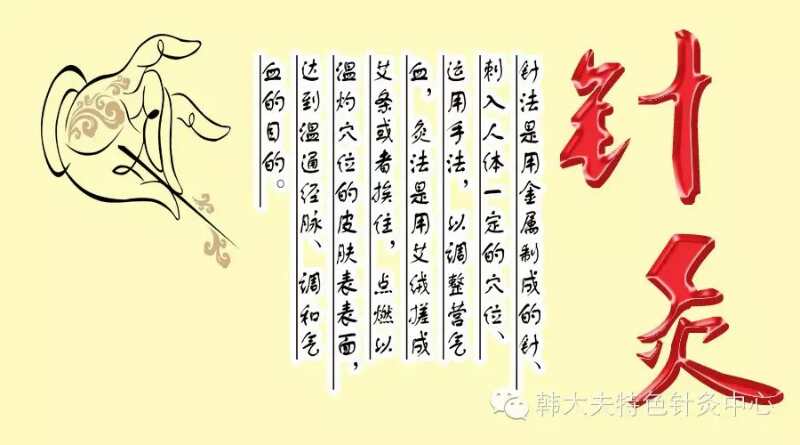 针灸
针法是用金属制成的针、
刺入人体一定的穴位、
运用手法，以调整营气
血，灸法是用艾绒搓成
艾条或者挨住，点燃以
温灼穴位的皮肤表表面，
达到温通经脉、调和气
血的目的。
韩大夫特色针灸中心